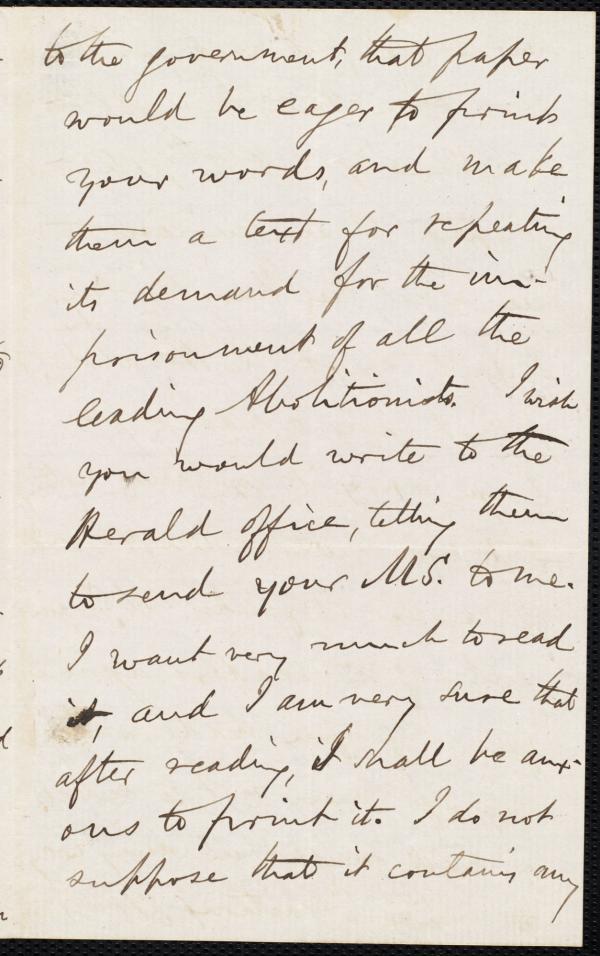 to the government, that paper
would be eager to print
your words, and make
them a text for repeating
its demand for the im-
prisonment of all the
leading Abolitionists. I wish
you would write to the
Herald office, telling them
to send your MS. to me.
I want very much to read
it, and I am very sure that
after reading, I shall be anxi-
ous to print it. I do not
suppose that it contains any